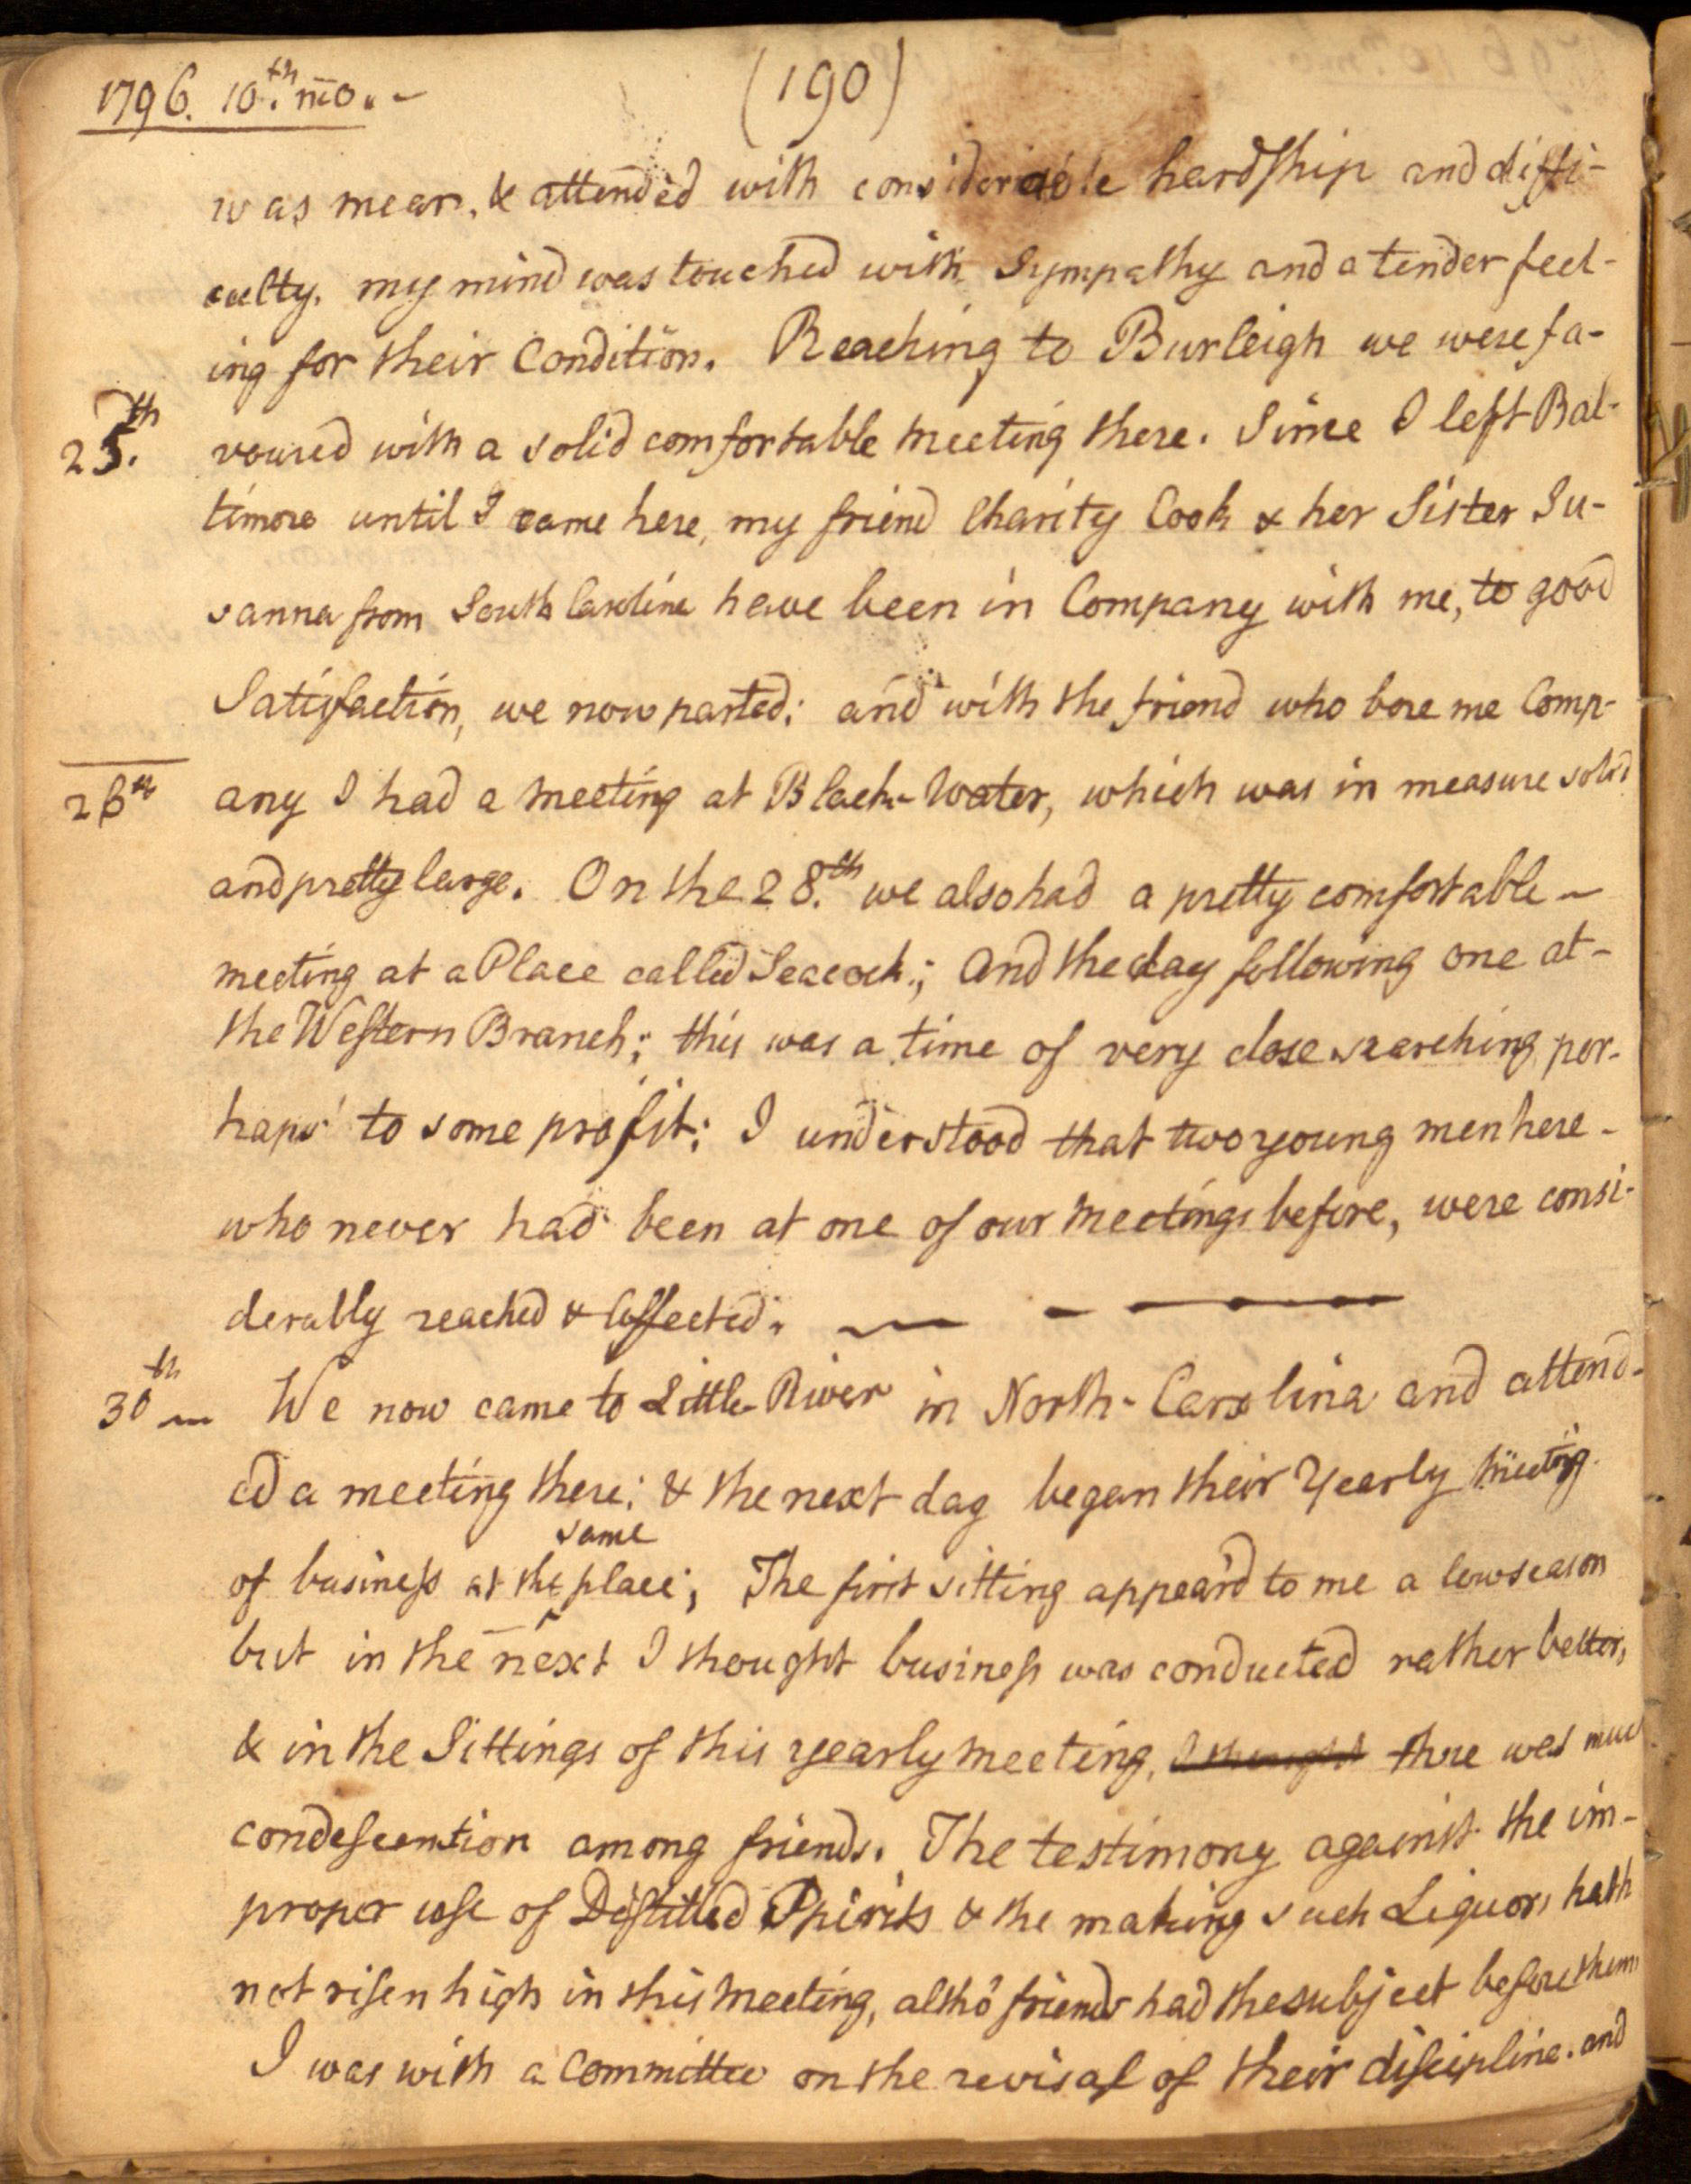 1796. 10.th mo. -
(190)
was mean, & attended with considerable hardship and diffi-
culty. my mind was touched with Sympathy and a tender feel-
ing for their Condition. Reaching to Burleigh we were fa-
25.th voured with a solid comfortable meeting there. Since I left Bal-
timore until I came here, my friend Charity Cook & her Sister Su-
sanna from South Carolina have been in Company with me, to good
Satisfaction, we now parted; and with the friend who bore me Comp-
26th any I had a meeting at Black-Water, which was in measure solid
and pretty large. On the 28.th we also had a pretty comfortable -
meeting at a Place called Seacock; and the day following one at -
the Western Branch; this was a time of very close searching, per-
haps to some profit; I understood that two young men here -
who never had been at one of our meetings before, were consi-
derably reached & affected.
30th We now came to Little River in North-Carolina and attend-
ed a meeting there; & the next day began their Yearly meeting
same
of business at the place; The first sitting appear'd to me a low season
but in the next I thought business was conducted rather better,
& in the Sittings of this yearly meeting, I thought there was much
condescention among friends. The testimony against the im-
proper use of Distilled Spirits & the making such Liquors hath
not risen high in this meeting, altho' friends had the subject before them
I was with a Committee on the revisal of their discipline. and